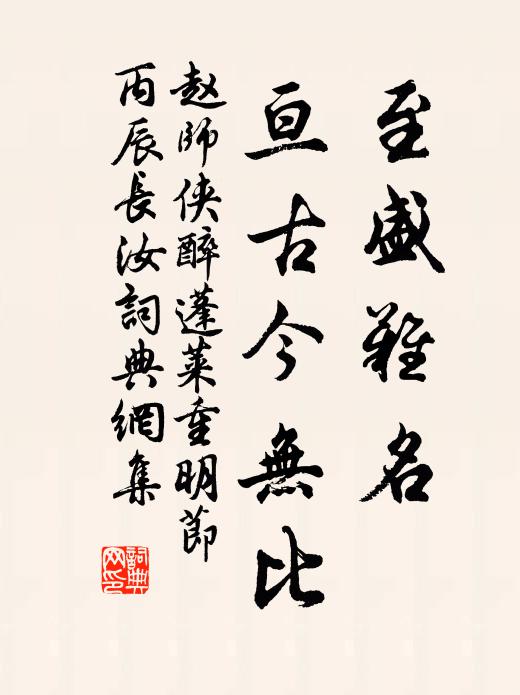 至盛難名
亘古今無比
赵師侠醉蓬莱重明節
丙辰長汝詞典網集
詞典网印